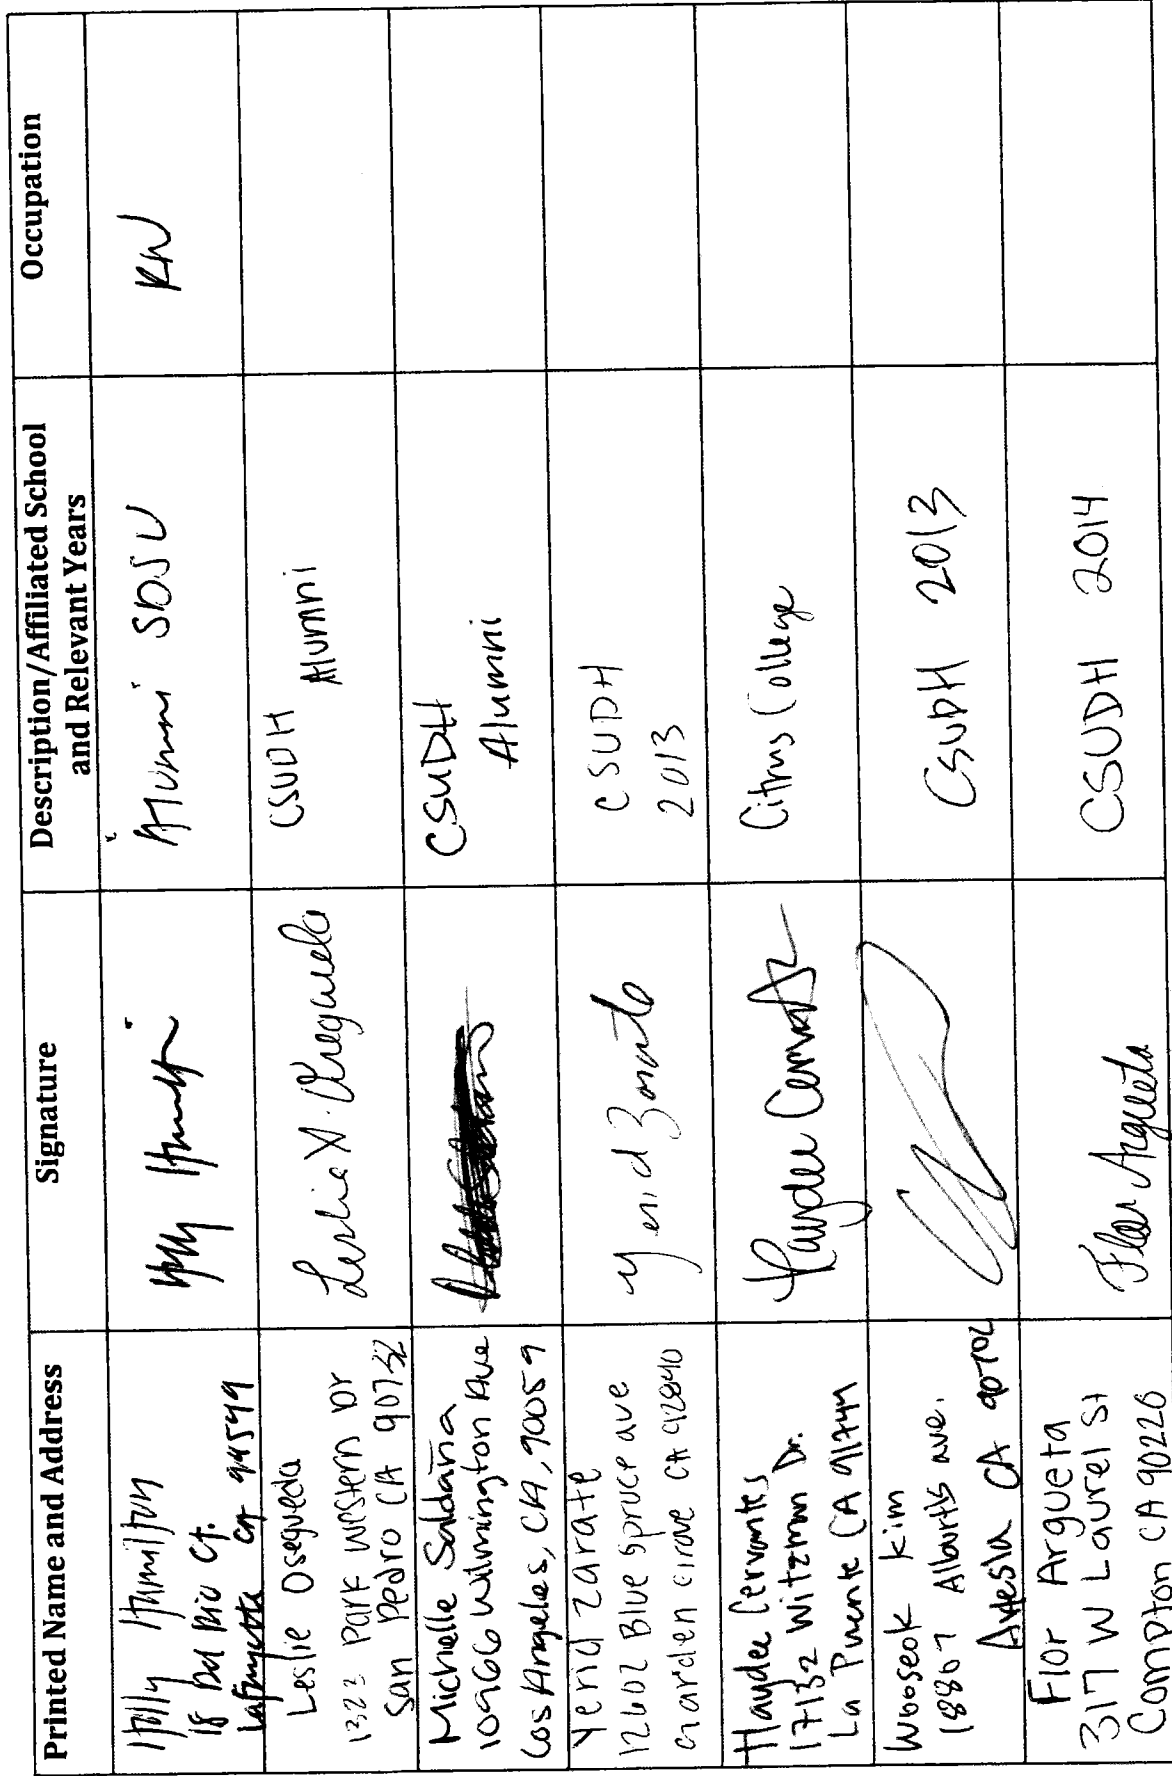 Printed Name and Address
Signature
Description/Affiliated School
and Relevant Years
Occupation
Holly Hamilton
18 Del Rio Ct.
Lafayette CA 94549
Holly Hamilton
Alumni SDSU
RN
Leslie Osegueda
1322 Park Western Dr
San Pedro CA 90732
Leslie X. Osegueda
CSUDH
Alumni
Michelle Saldaña
10966 Wilmington Ave
Los Angeles, CA, 90059
CSUDH
Alumni
Yenid Zarate
12602 Blue Spruce ave
Garden Grove CA 92840
Yenid Zarate
CSUDH
2013
Haydee Cervantes
17132 Witzman Dr.
La Puente CA 91744
Haydee Cervantes
Citrus College
Wooseok Kim
18807 Alburtis ave.
Artesia CA 90702
CSUDH 2013
Flor Argueta
317 W Laurel St
Compton CA 90220
Flor Argueta
CSUDH 2014